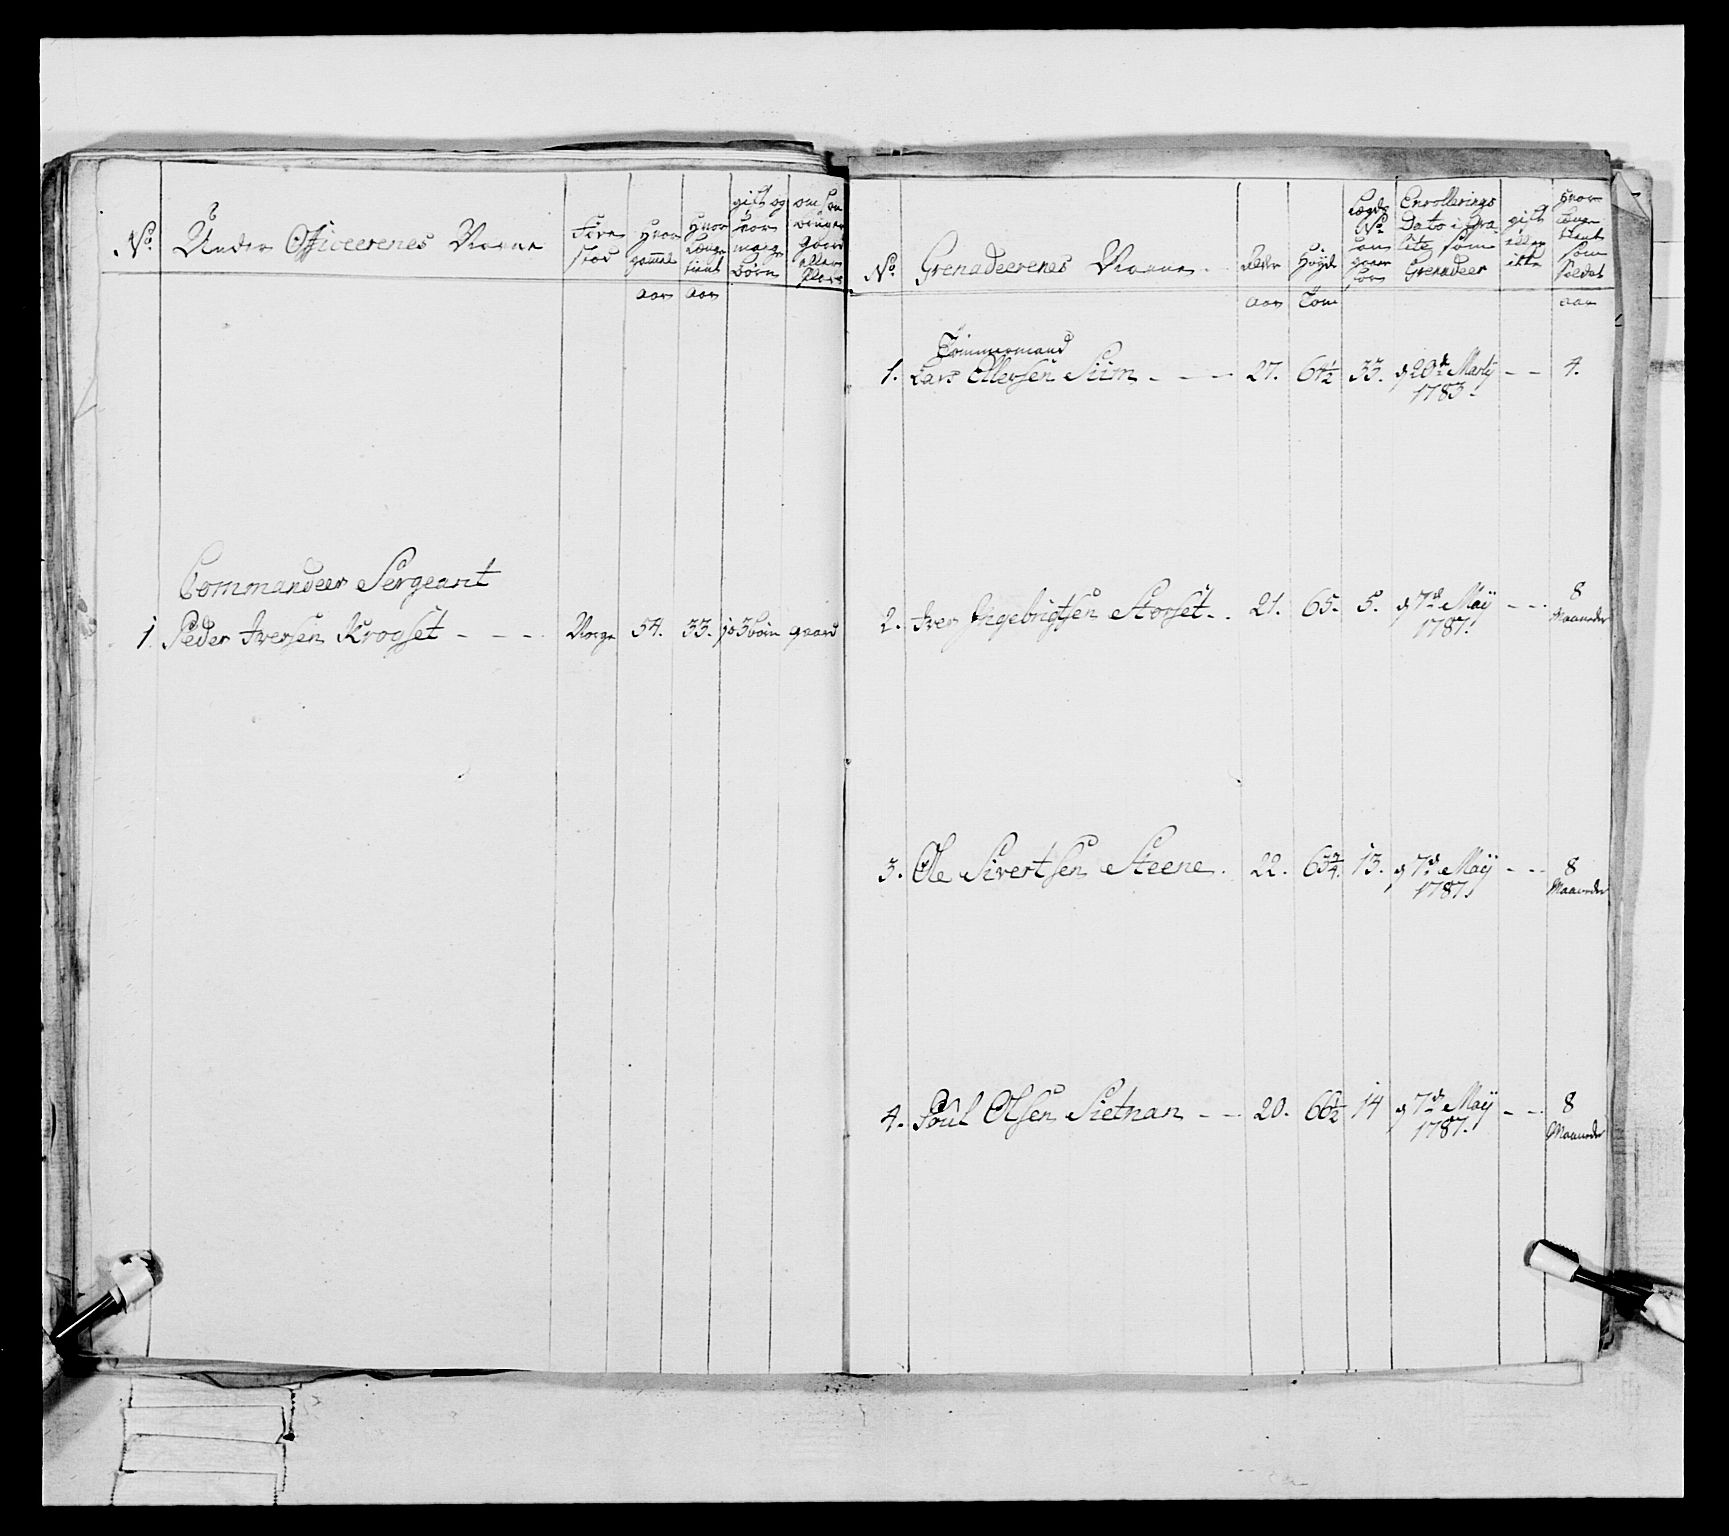 No. Under Officeerenes Navne Føde stæd Hvor gammel Hvor Længe tient gift og hvor mange børn om han bruger Gaard eller Plads
aar aar
Commandeer Sergeant
1. Peder Iversen Krogset - - - Norge 54. 33. jo 3 børn gaard
No. Grenadeerenes Navne. Alder Høyde Lægds No. han gaaer for Enrollerings Dato i Qualitè som Grenadeer gift eller ikke Hvor Længe tient som Soldat
aar Tom aar
Tømmermand
1. Lars Ellefsen Siim - - - 27. 64½ 33. d 20de Martij - - 4.
1783.
2. Iver Ingebrigtsen Storset. . 21. 65. 5. d 7de Maij - - - 8
1787. Maaneder
3. Ole Sivertsen Steene. 22. 63¾. 13. d 7de Maij - - - 8
1787. Maaneder
4. Poul Olsen Sletnan - - 20. 66½ 14 d 7de Maij - - 8
1787. Maaneder